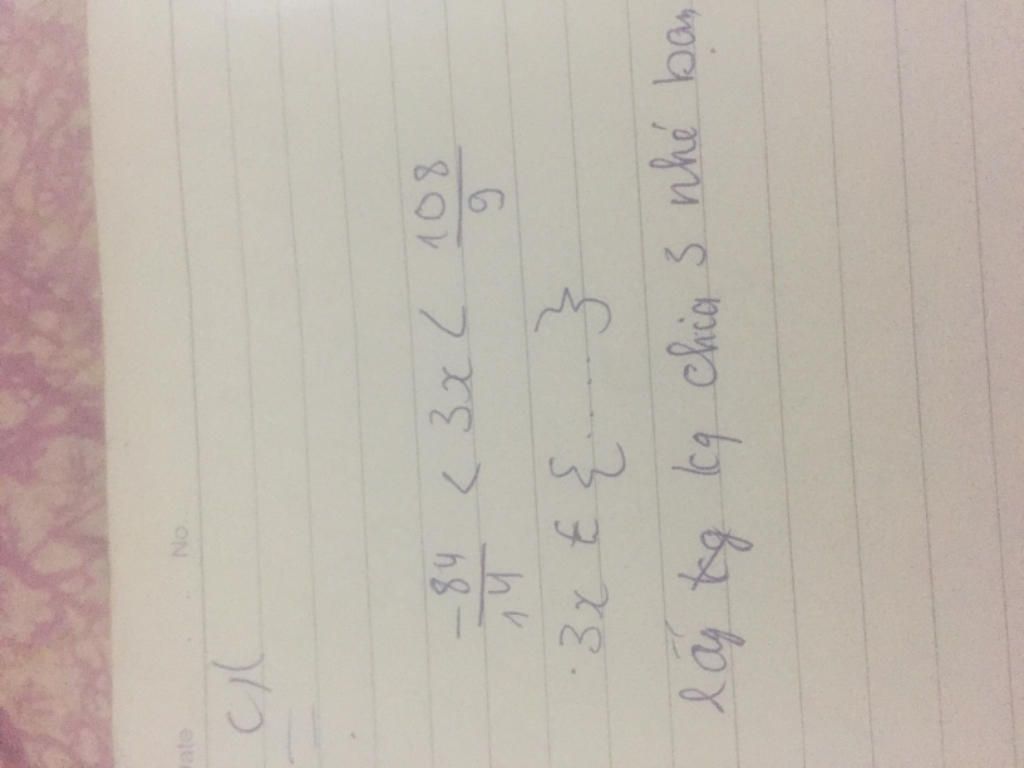 Date No
c)
-84/14 < 3x < 108/9
3x ∈ {......}
lấy kq chia 3 nhé bạn